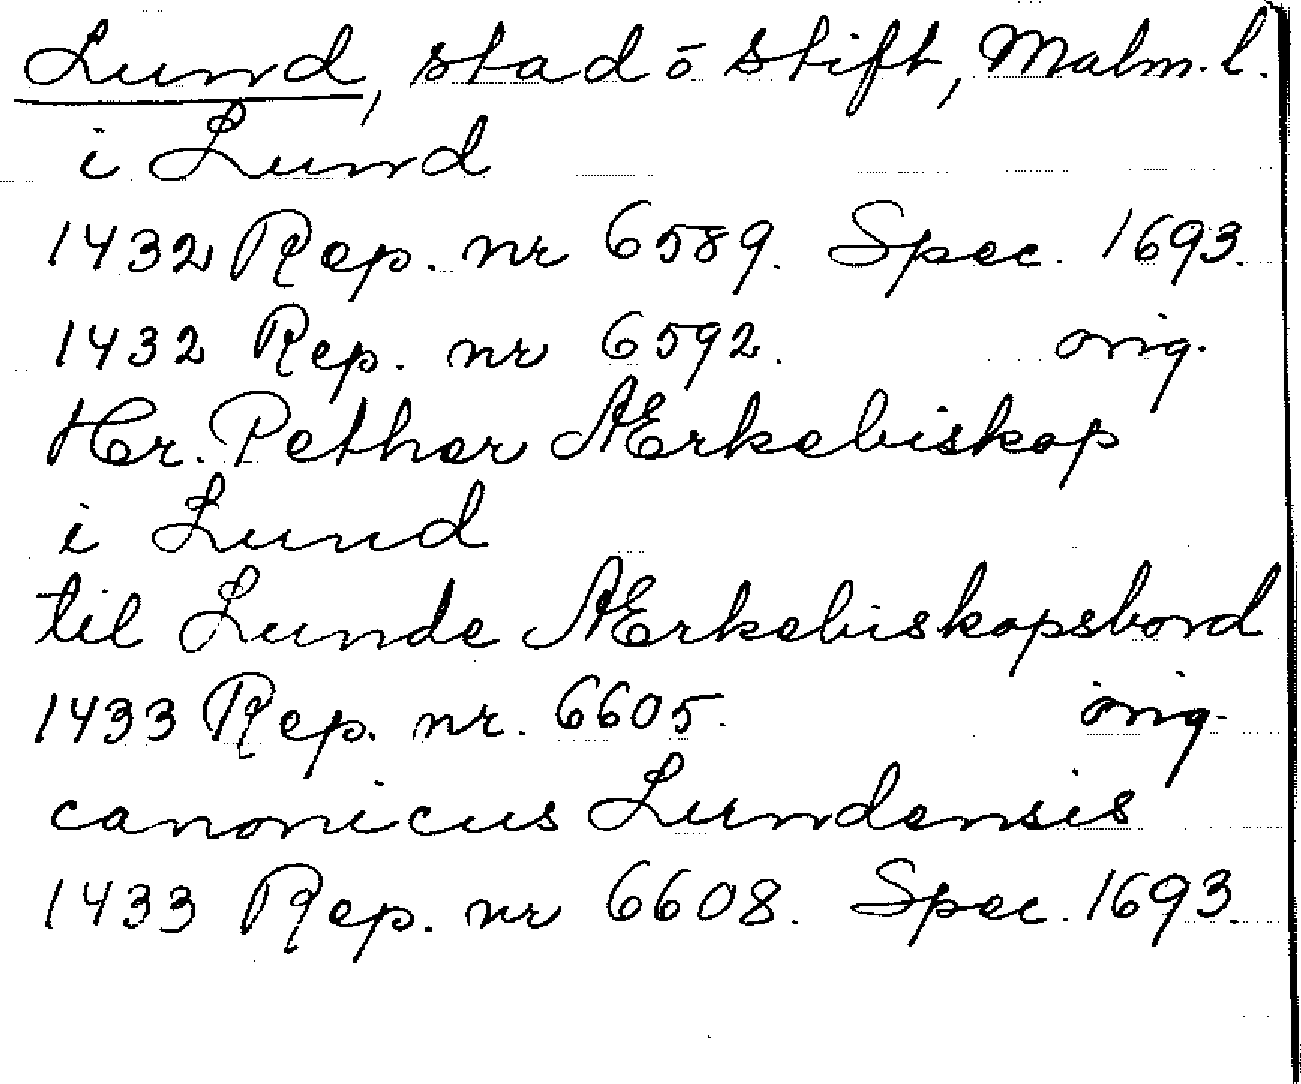 Lund, stad o stift, Malm. l.
i Lund
1432 Rep. nr 6589. Spec. 1693.
1432 Rep. nr 6592. orig.
Hr. Pether Ærkebiskop
i Lund
til Lunde Ærkebiskopsbord
1433 Rep. nr. 6605. orig.
canonicus Lundensis
1433 Rep. nr 6608. Spec. 1693.